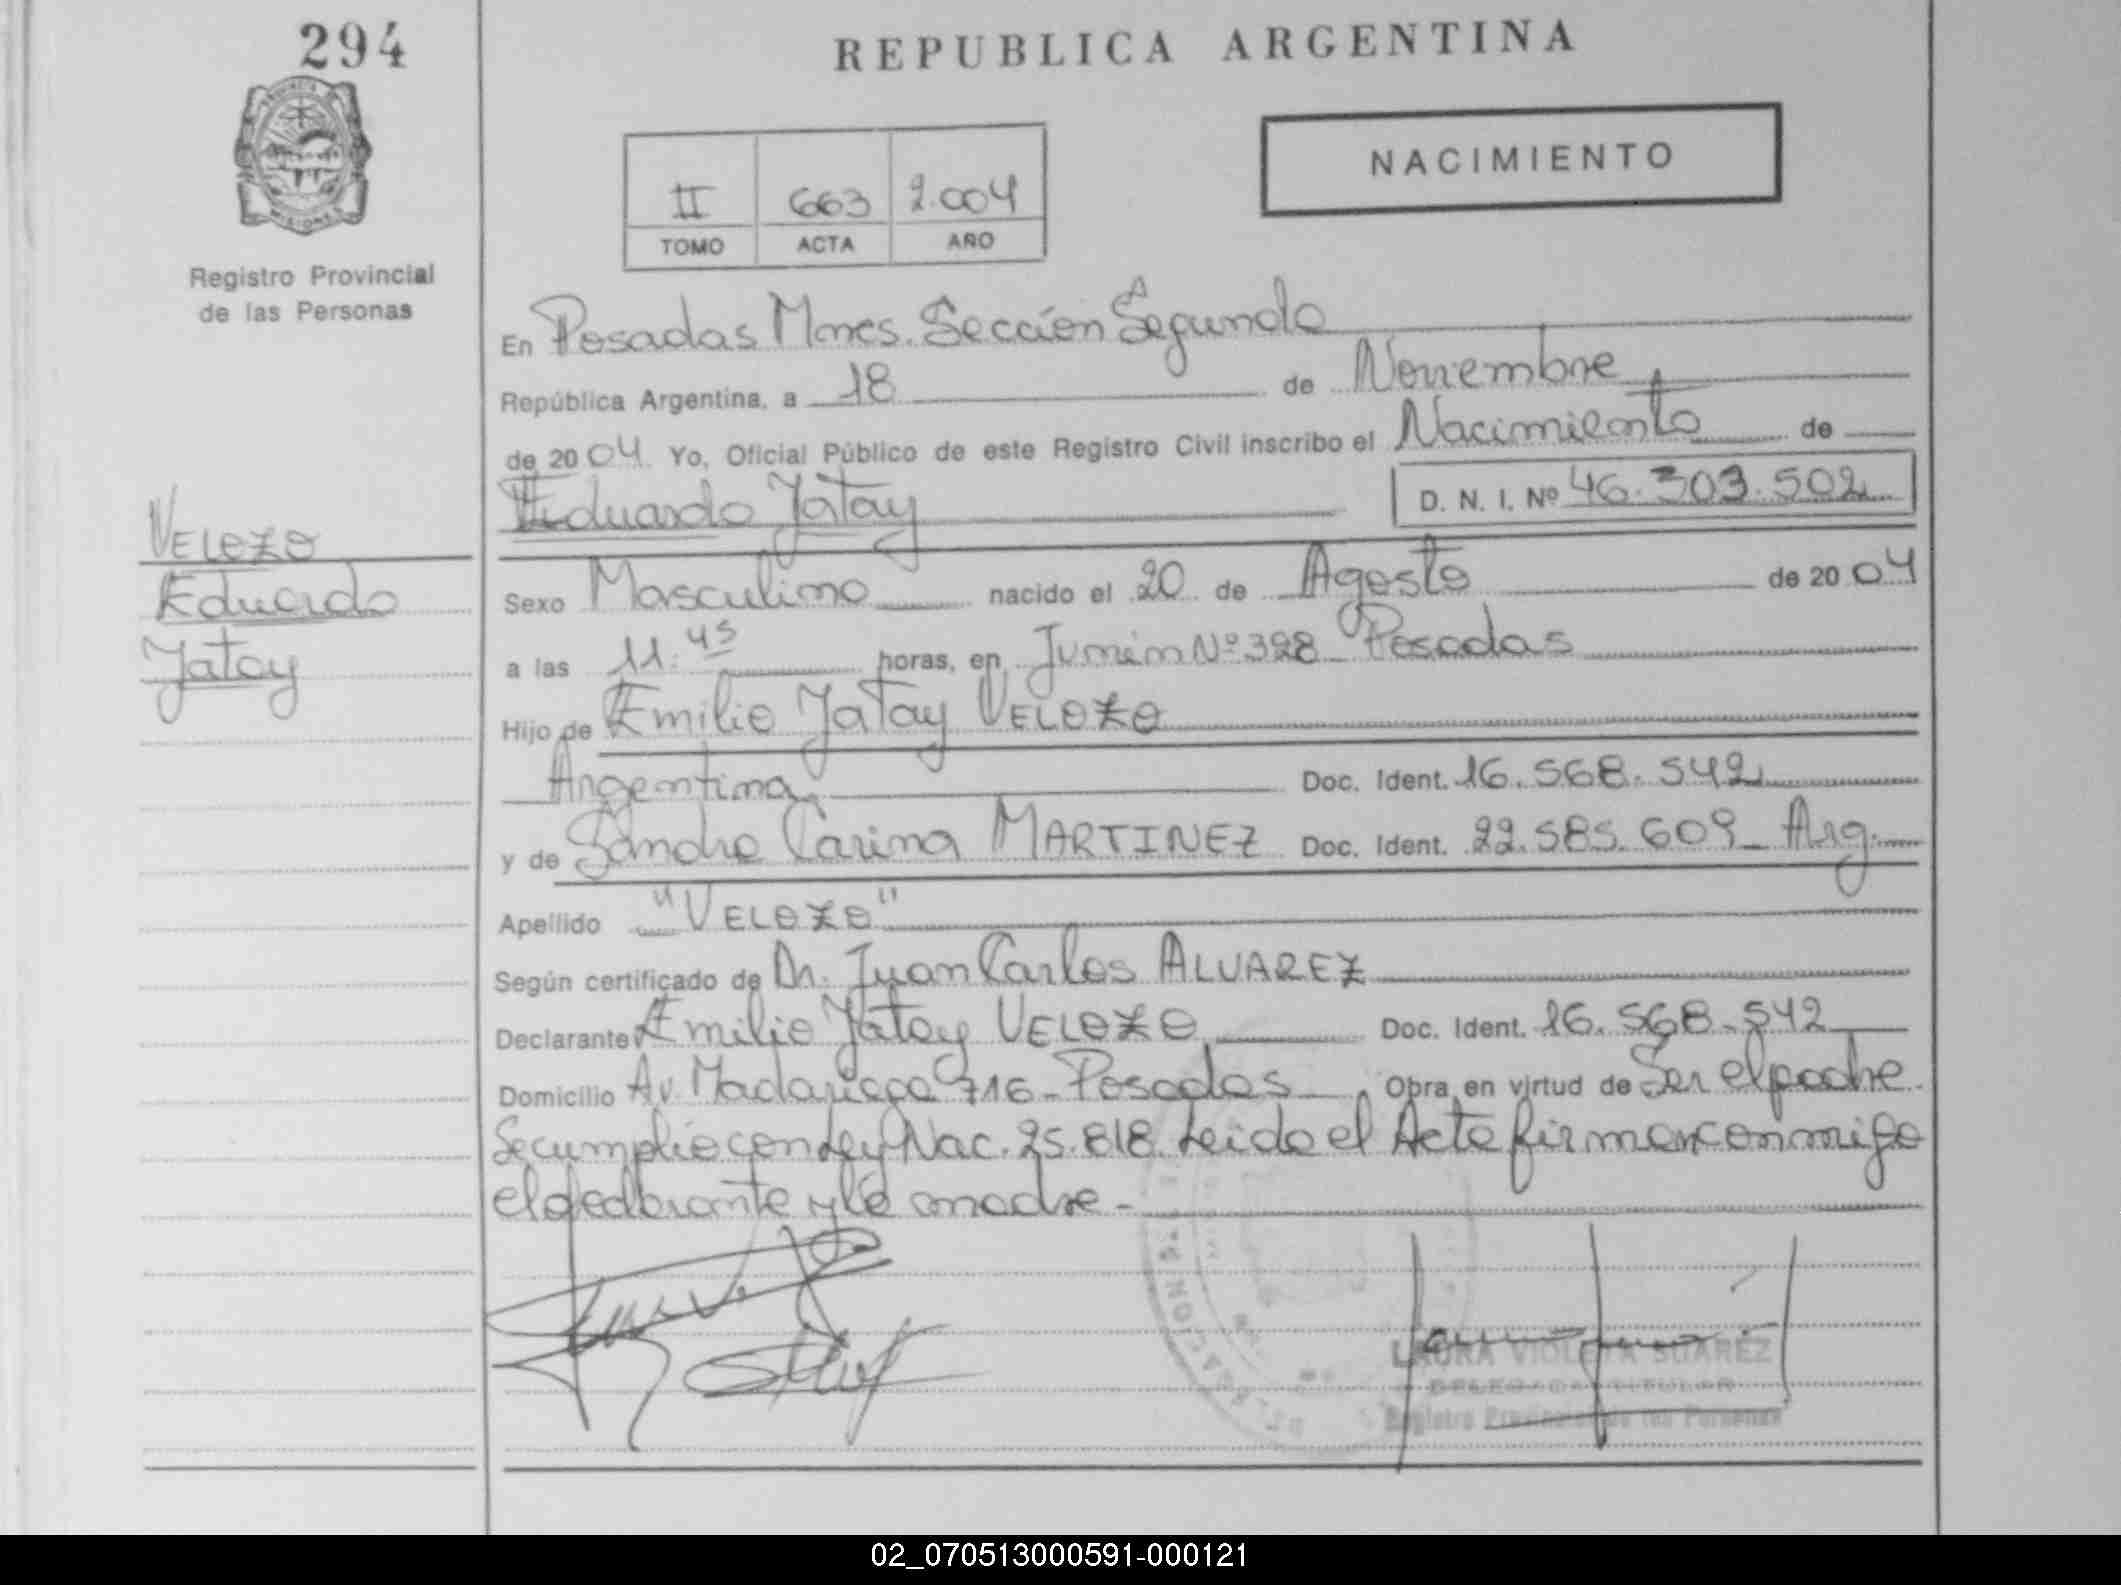 294
REPUBLICA ARGENTINA
NACIMIENTO
II 663 2.004
TOMO ACTA AÑO
Registro Provincial
de las Personas
En Posadas Mnes. Sección Segunda
República Argentina, a 18 de Noviembre
de 2004 Yo, Oficial Público de este Registro Civil inscribo el Nacimiento de
Eduardo Yatay D. N. I. Nº 46.303.502
VELOZO
Eduardo
Yatay
Sexo Masculino nacido el 20 de Agosto de 2004
a las 11.45 horas, en Junín Nº 328 Posadas
Hijo de Emilio Yatay VELOZO
Argentina Doc. Ident. 16.568.542
y de Sandra Carina MARTINEZ Doc. Ident. 22.585.609 Arg.
Apellido "VELOZO"
Según certificado de Dr. Juan Carlos ALVAREZ
Declarante Emilio Yatay VELOZO Doc. Ident. 16.568.542
Domicilio Av. Madariaga 716 - Posadas Obra en virtud de Ser el padre
Se cumplio con Ley Nac. 25.818. Leida el Acta firman conmigo
el declarante y la madre.-
LAURA VIOLETA SUAREZ
DELEGADA TITULAR
Registro Provincial de las Personas
02_070513000591-000121